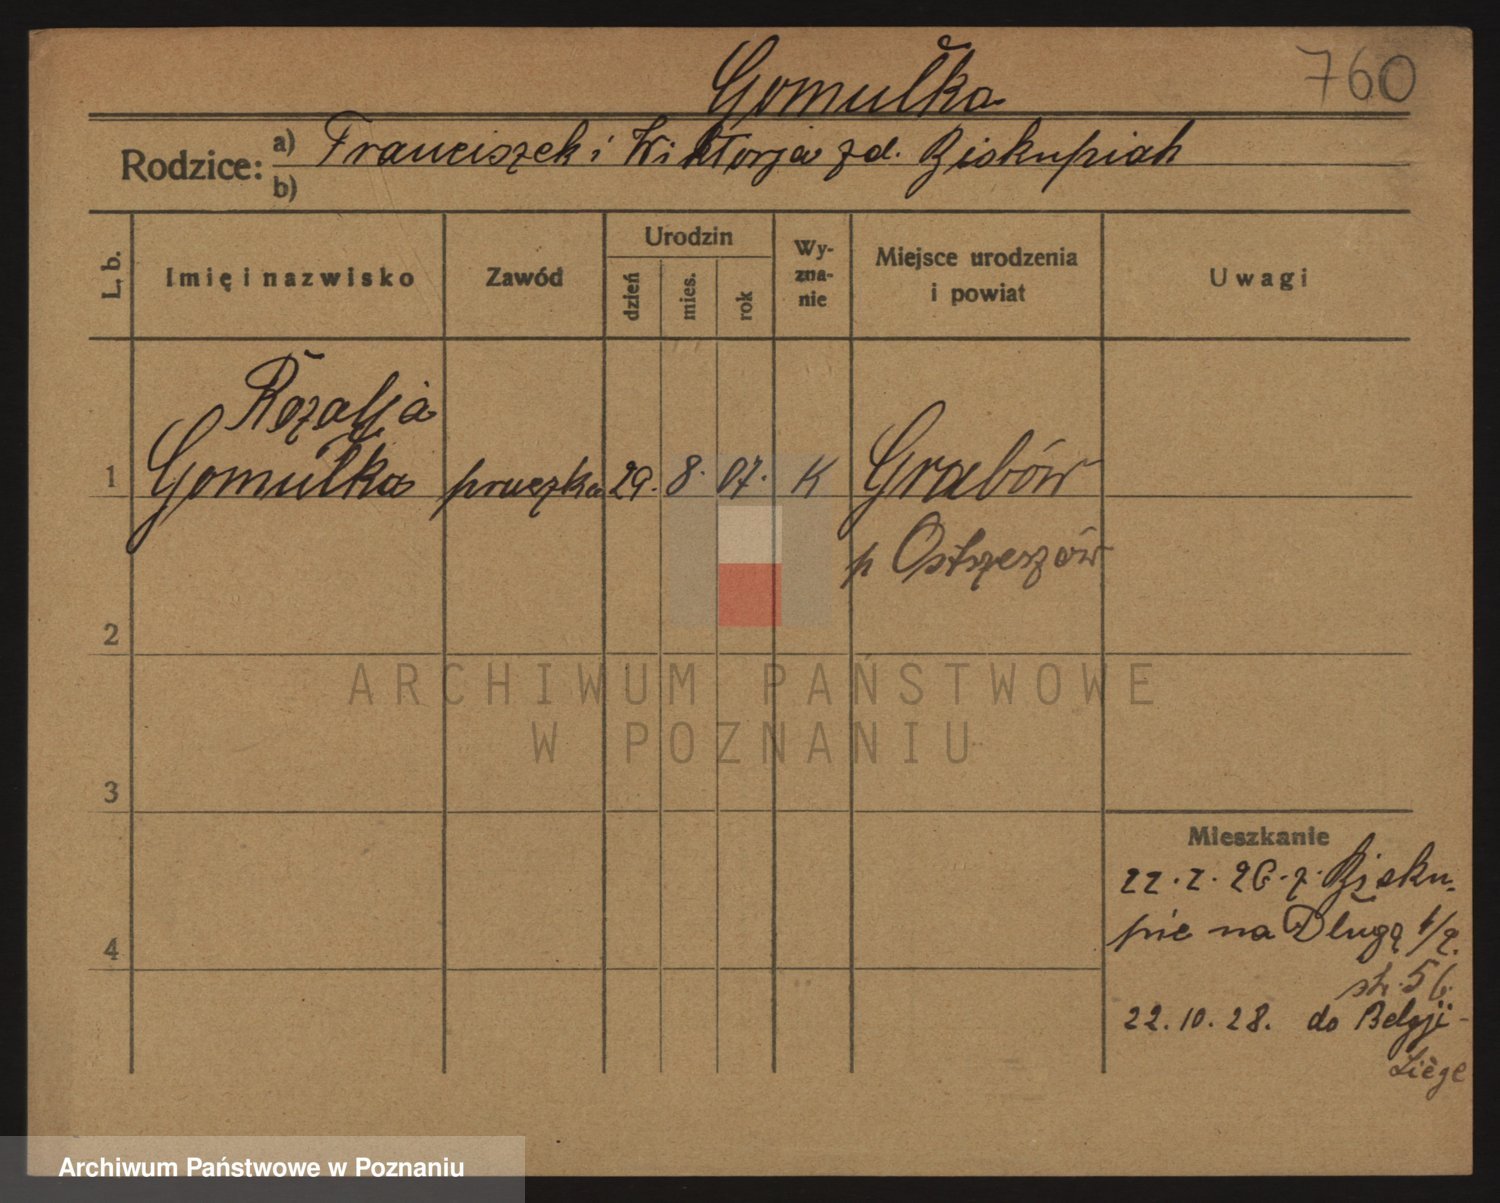 Gomułka
760
Rodzice: a) Franciszek i Wiktorja zd. Biskupiak
b)
L. b.
Imię i nazwisko
Zawód
Urodzin
dzień
mies.
rok
Wy-
zna-
nie
Miejsce urodzenia
i powiat
Uwagi
Rozalja
1 Gomułka praczka 29. 8. 07. K Grabów
p Ostrzeszów
2
ARCHIWUM PAŃSTWOWE
W POZNANIU
3
Mieszkanie
22. 2. 26. z. Bisku-
pic na Długą 1/2.
str. 56.
4
22. 10. 28. do Belgji -
Liège
Archiwum Państwowe w Poznaniu